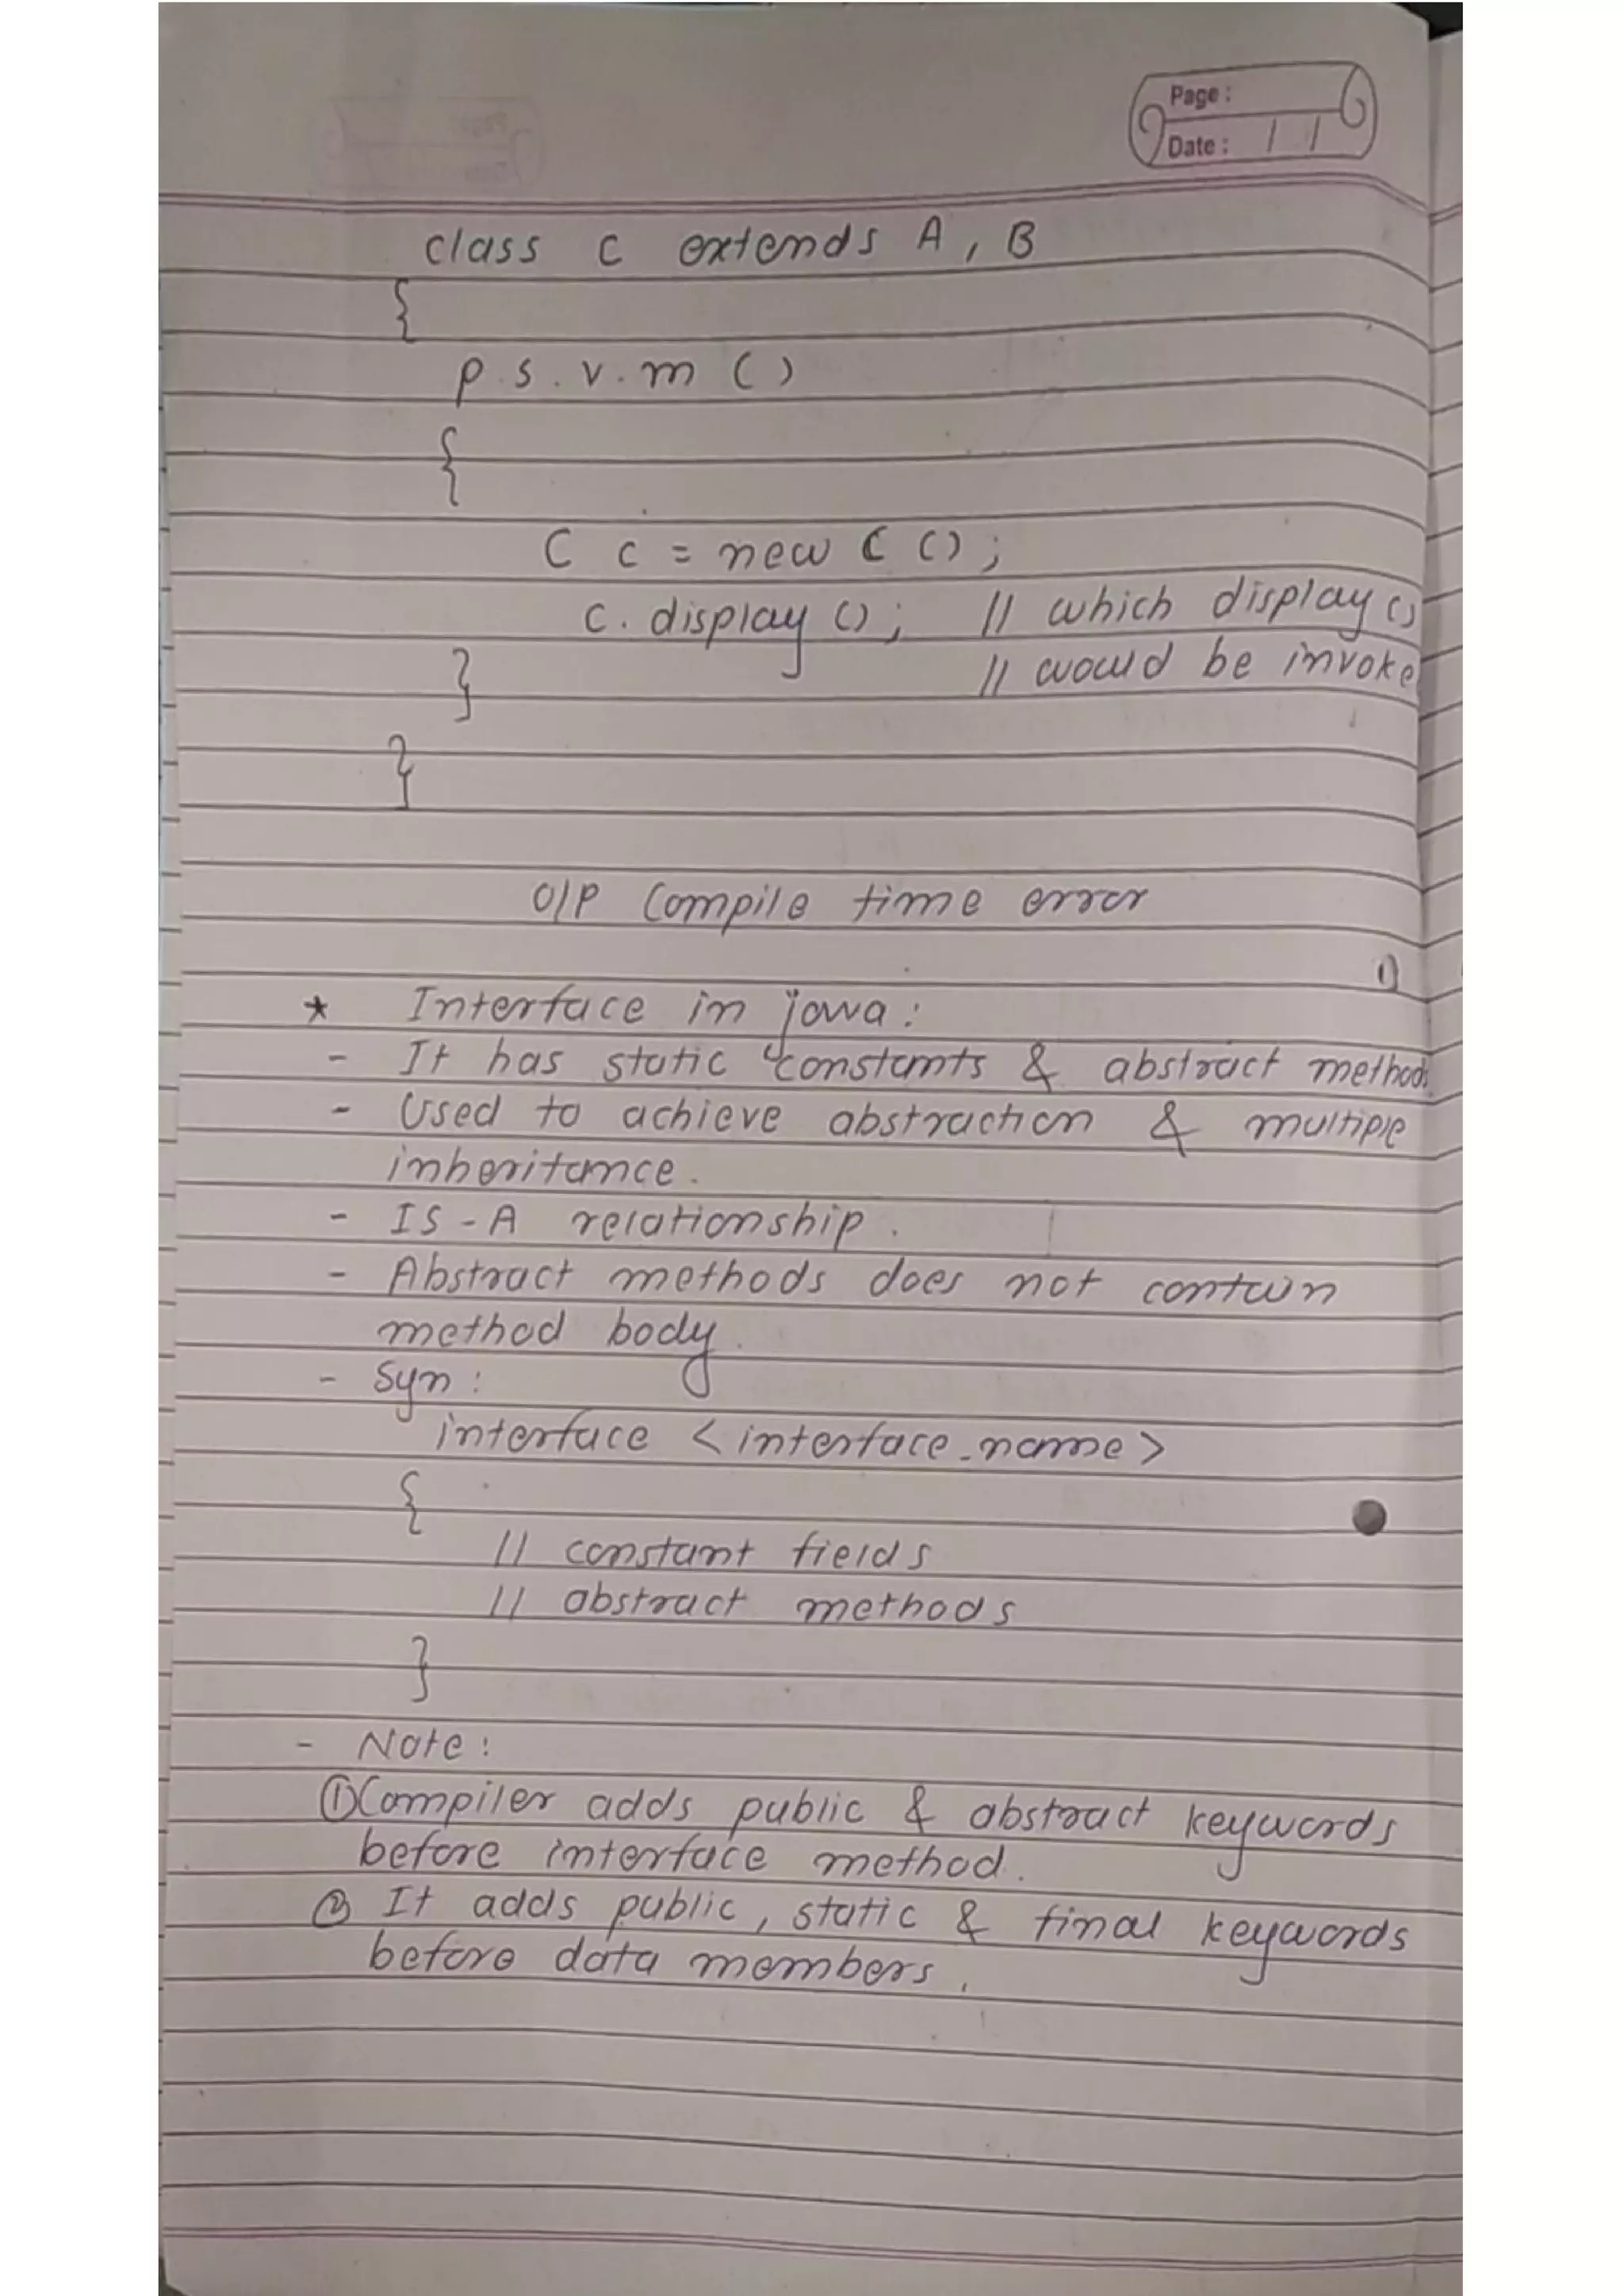 Page :
Date : / /
class C extends A, B
{
p.s.v.m ()
{
C c = new C ();
c.display (); // which display ()
// would be invoke
}
}
O/P Compile time error
1)
* Interface in java :
- It has static constants & abstract methods.
- Used to achieve abstraction & multiple
inheritance.
- IS-A relationship.
- Abstract methods does not contain
method body.
- Syn :
interface <interface_name>
{
// constant fields
// abstract methods
}
- Note :
① Compiler adds public & abstract keywords
before interface method.
② It adds public, static & final keywords
before data members.